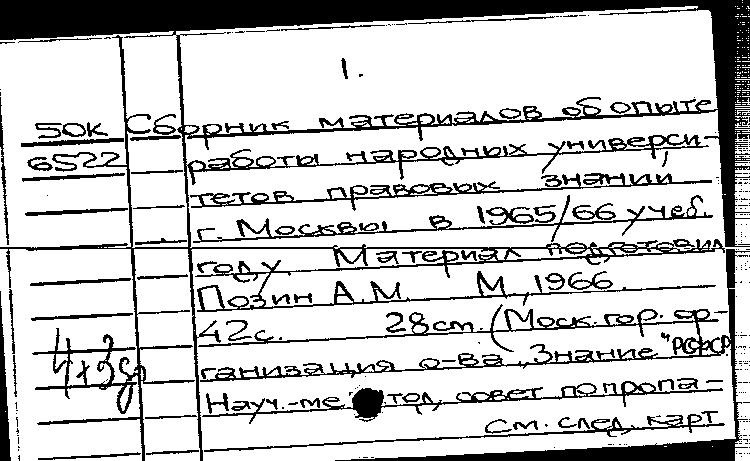 1.
50к Сборник материалов об опыте
6522 работы народных универси-
тетов правовых знаний
г. Москвы в 1965/66 учеб.
году. Материал подготовил
Позин А.М. М., 1966.
42с. 28см. (Моск. гор. ор-
ганизация о-ва „Знание" РСФСР
Науч.-метод. совет по пропа-
см. след. карт